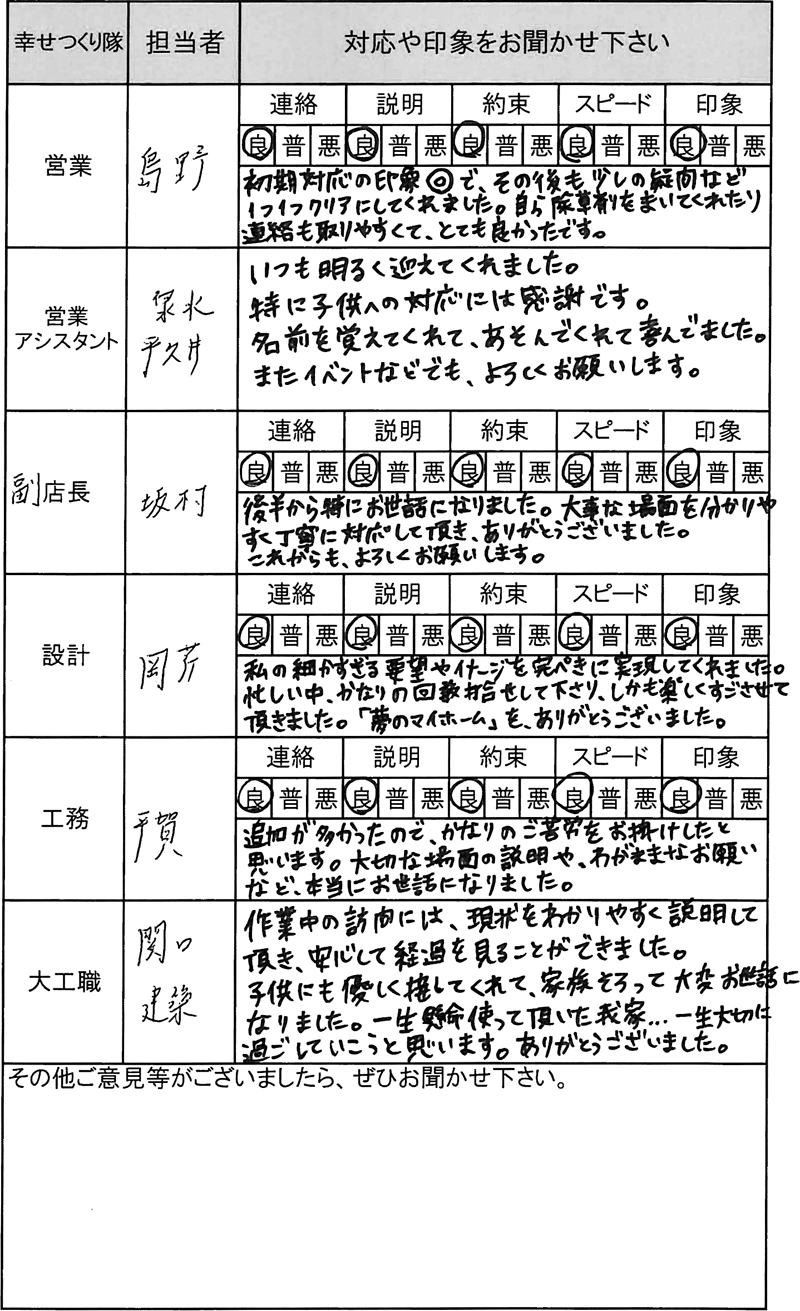 幸せつくり隊 担当者 対応や印象をお聞かせ下さい
営業 島野
連絡 説明 約束 スピード 印象
良 普 悪 良 普 悪 良 普 悪 良 普 悪 良 普 悪
初期対応の印象◎で、その後も少しの疑問など
1つ1つクリアにしてくれました。自ら除草剤をまいてくれたり
連絡も取りやすくて、とても良かったです。
営業
アシスタント
泉水
平久井
いつも明るく迎えてくれました。
特に子供への対応には感謝です。
名前を覚えてくれて、あそんでくれて喜んでました。
またイベントなどでも、よろしくお願いします。
副店長 坂村
連絡 説明 約束 スピード 印象
良 普 悪 良 普 悪 良 普 悪 良 普 悪 良 普 悪
後半から特にお世話になりました。大事な場面を分かりや
すく丁寧に対応して頂き、ありがとうございました。
これからも、よろしくお願いします。
設計 岡芹
連絡 説明 約束 スピード 印象
良 普 悪 良 普 悪 良 普 悪 良 普 悪 良 普 悪
私の細かすぎる要望やイメージを完ぺきに実現してくれました。
忙しい中、かなりの回数打合せして下さり、しかも楽しくすごさせて
頂きました。「夢のマイホーム」を、ありがとうございました。
工務 平賀
連絡 説明 約束 スピード 印象
良 普 悪 良 普 悪 良 普 悪 良 普 悪 良 普 悪
追加が多かったので、かなりのご苦労をお掛けしたと
思います。大切な場面の説明や、わがままなお願い
など、本当にお世話になりました。
大工職
関口
建築
作業中の訪問には、現状をわかりやすく説明して
頂き、安心して経過を見ることができました。
子供にも優しく接してくれて、家族そろって大変お世話に
なりました。一生懸命使って頂いた我家…一生大切に
過ごしていこうと思います。ありがとうございました。
その他ご意見等がございましたら、ぜひお聞かせ下さい。